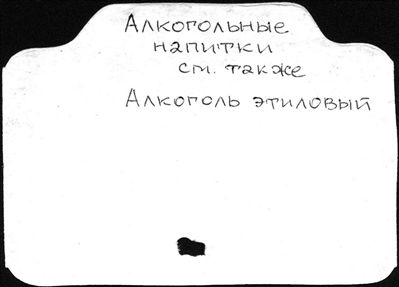 Алкогольные
напитки
см. также
Алкоголь этиловый